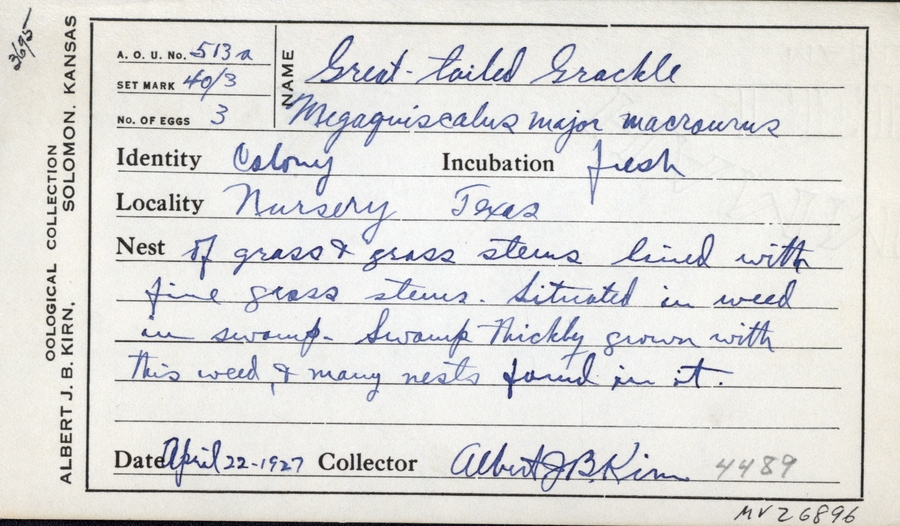 3695
OOLOGICAL COLLECTION
ALBERT J. B. KIRN, SOLOMON, KANSAS
A. O. U. No. 513a
SET MARK 40/3
No. OF EGGS 3
NAME Great-tailed Grackle
Megaquiscalus major macrourus
Identity Colony Incubation fresh
Locality Nursery Texas
Nest of grass & grass stems lined with
fine grass stems. Situated in weed
in swamp. Swamp thickly grown with
this weed, & many nests found in it.
Date April 22-1927 Collector Albert J. B. Kirn 4489
MVZ 6896